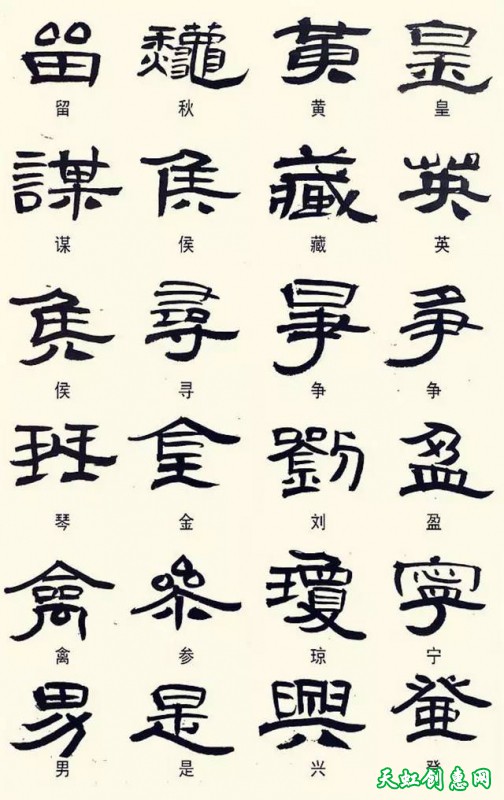 留 秋 黄 皇
謀 侯 藏 英
留 秋 黄 皇
谋 侯 藏 英
侯 尋 爭 爭
侯 寻 争 争
琴 金 劉 盈
琴 金 刘 盈
禽 参 瓊 寧
禽 参 琼 宁
男 是 興 登
男 是 兴 登
天虹创惠网